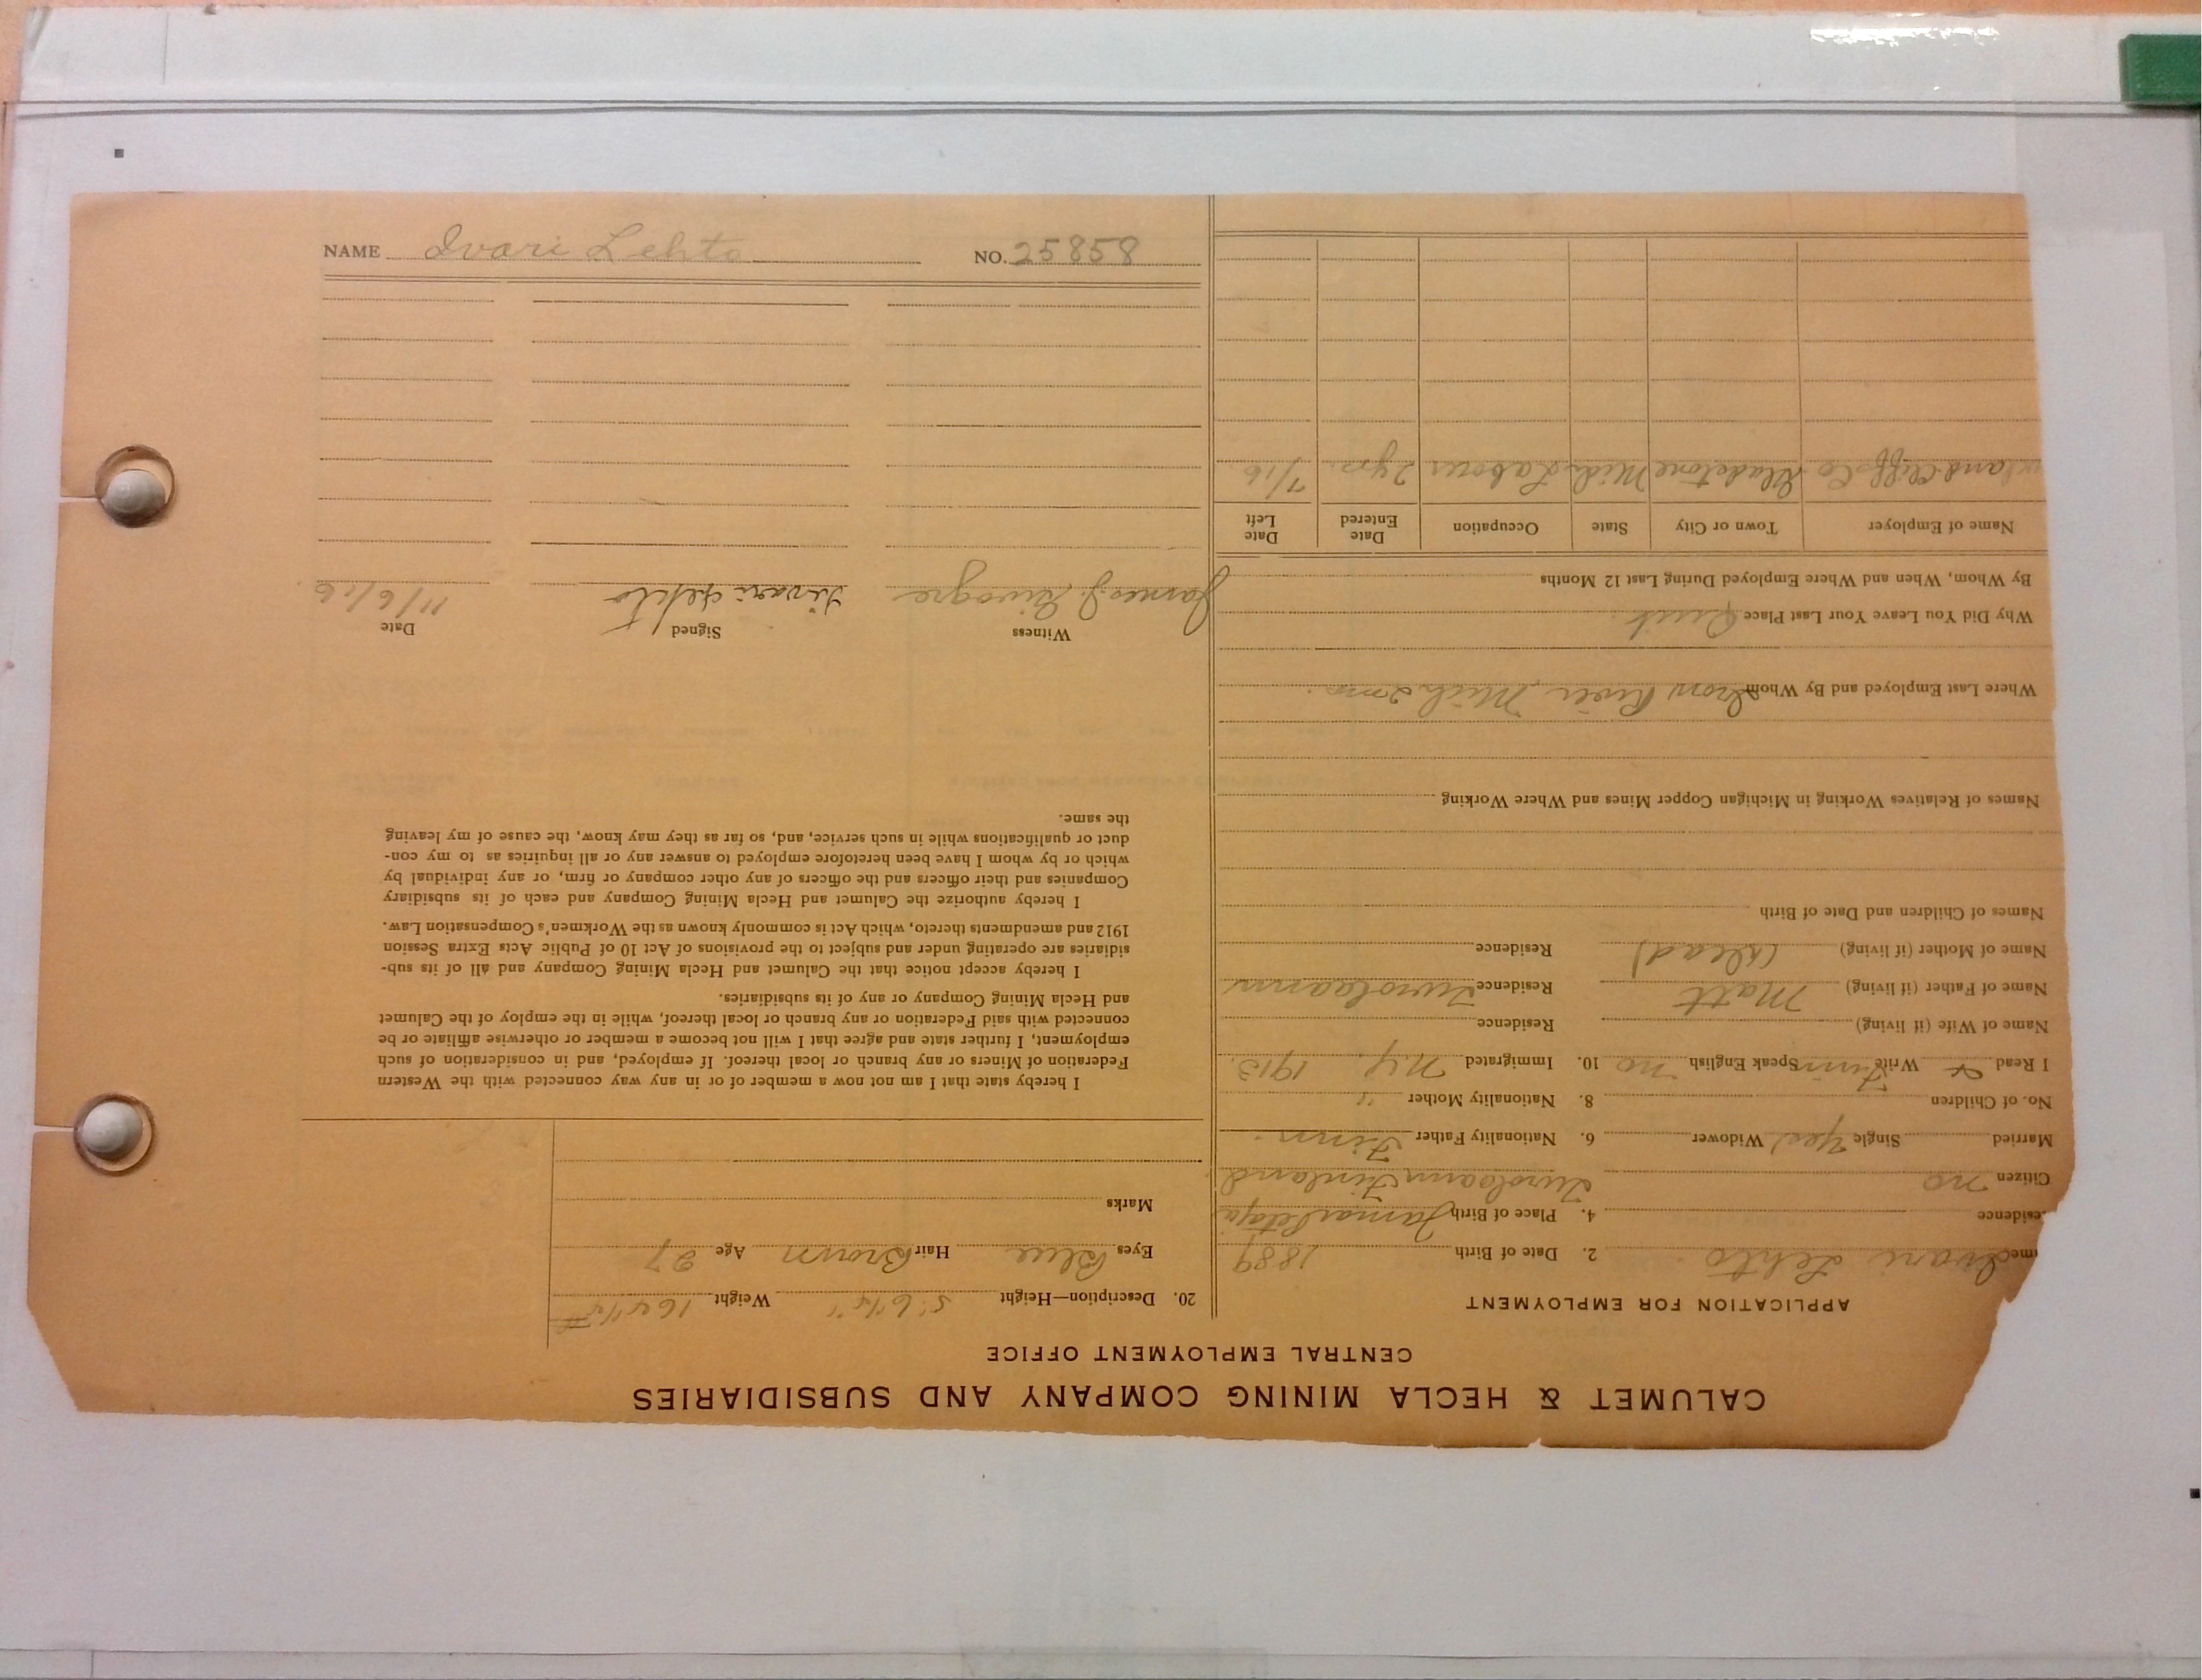 CALUMET & HECLA MINING COMPANY AND SUBSIDIARIES
CENTRAL EMPLOYMENT OFFICE
APPLICATION FOR EMPLOYMENT
me Ivari Lehto 2. Date of Birth 1889
esidence 4. Place of Birth
Citizen no Finland
Married Single Yes Widower 6. Nationality Father Finn
No. of Children 8. Nationality Mother "
I Read & Write Finn Speak English no 10. Immigrated N.Y. 1913
Name of Wife (if living) Residence
Name of Father (if living) Matt Residence
Name of Mother (if living) (dead) Residence
Names of Children and Date of Birth
Names of Relatives Working in Michigan Copper Mines and Where Working
Where Last Employed and By Whom Iron River Mich 2 mo.
Why Did You Leave Your Last Place Quit
By Whom, When and Where Employed During Last 12 Months
Name of Employer Town or City State Occupation Date Entered Date Left
land Cliffs Co Gladstone Mich Labour 2 yrs. 7/16
20. Description—Height 5' 6 1/2" Weight
Eyes Blue Hair Brown Age 27
Marks
I hereby state that I am not now a member of or in any way connected with the Western
Federation of Miners or any branch or local thereof. If employed, and in consideration of such
employment, I further state and agree that I will not become a member or otherwise affiliate or be
connected with said Federation or any branch or local thereof, while in the employ of the Calumet
and Hecla Mining Company or any of its subsidiaries.
I hereby accept notice that the Calumet and Hecla Mining Company and all of its sub-
sidiaries are operating under and subject to the provisions of Act 10 of Public Acts Extra Session
1912 and amendments thereto, which Act is commonly known as the Workmen's Compensation Law.
I hereby authorize the Calumet and Hecla Mining Company and each of its subsidiary
Companies and their officers and the officers of any other company or firm, or any individual by
which or by whom I have been heretofore employed to answer any or all inquiries as to my con-
duct or qualifications while in such service, and, so far as they may know, the cause of my leaving
the same.
Witness Signed Date
James J. Iivari Lehto 11/6/16
NAME Ivari Lehto NO. 25858